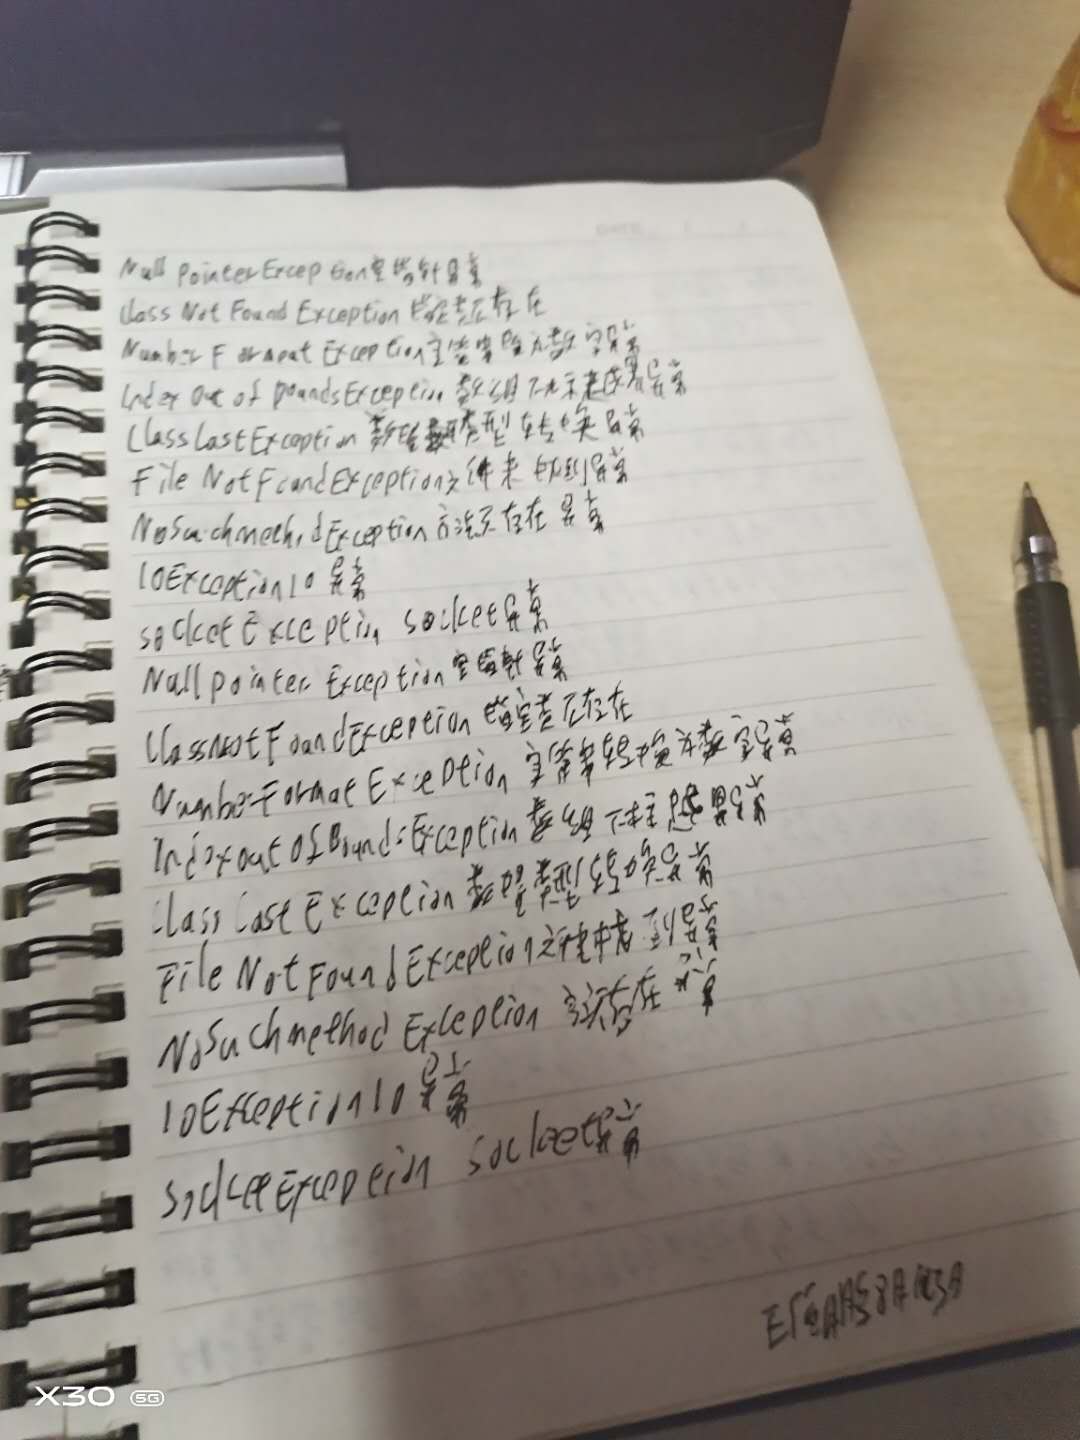 Null pointerException空指针异常
Class Not Found Exception 指定类不存在
Number Format Exception字符串 为数字异常
Index Out of boundsException 数组下 异常
ClassCastException 数据类型转换异常
File NotFoundException文件未 到异常
NoSuchmethodException方法不存在 异常
IOException IO 异常
socketException socket异常
Null pointer Exception空 异常
ClassNotFoundException 指定类不存在
NumberFormatException 字符串转换为数字异常
IndexoutOfBoundsException 数组下标 异常
Class Cast Exception 数据类型转换异常
File NotFoundException文件未 到异常
NoSuchmethod Exception 存在
IOExceptionIO 异常
socketException socket异常
X30 5G